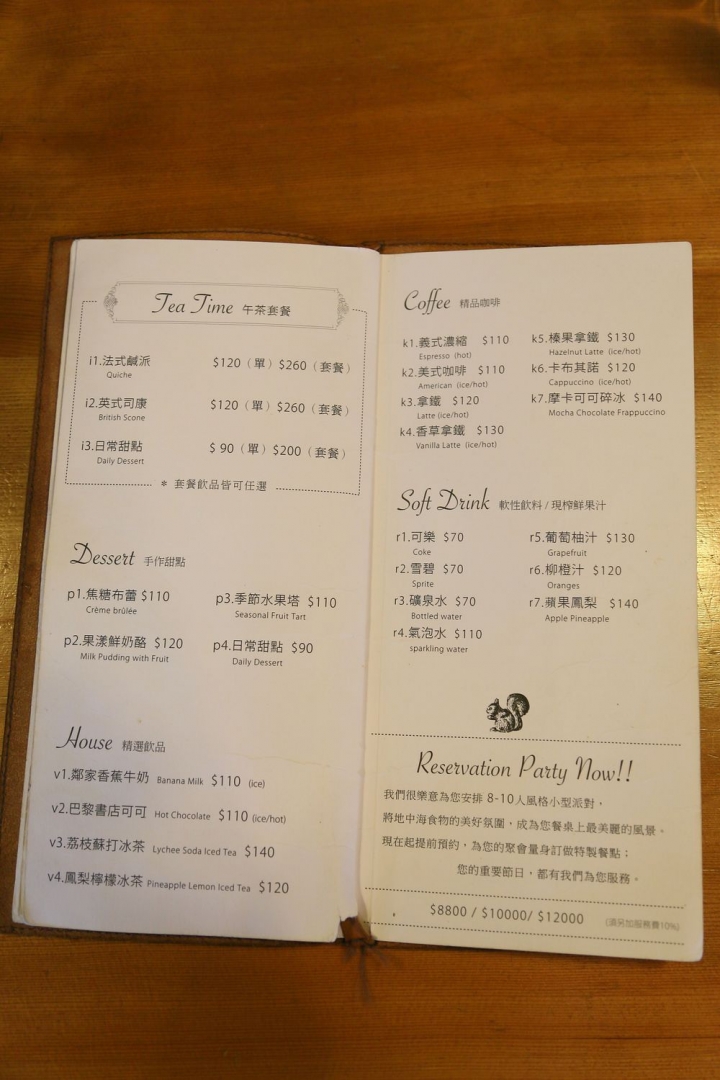 Tea Time 午茶套餐
i1.法式鹹派 $120（單）$260（套餐）
Quiche
i2.英式司康 $120（單）$260（套餐）
British Scone
i3.日常甜點 $ 90（單）$200（套餐）
Daily Dessert
* 套餐飲品皆可任選
Dessert 手作甜點
p1.焦糖布蕾 $110
Crème brûlée
p3.季節水果塔 $110
Seasonal Fruit Tart
p2.果漾鮮奶酪 $120
Milk Pudding with Fruit
p4.日常甜點 $90
Daily Dessert
House 精選飲品
v1.鄰家香蕉牛奶 Banana Milk $110 (ice)
v2.巴黎書店可可 Hot Chocolate $110 (ice/hot)
v3.荔枝蘇打冰茶 Lychee Soda Iced Tea $140
v4.鳳梨檸檬冰茶 Pineapple Lemon Iced Tea $120
Coffee 精品咖啡
k1.義式濃縮 $110
Espresso (hot)
k2.美式咖啡 $110
American (ice/hot)
k3.拿鐵 $120
Latte (ice/hot)
k4.香草拿鐵 $130
Vanilla Latte (ice/hot)
k5.榛果拿鐵 $130
Hazelnut Latte (ice/hot)
k6.卡布其諾 $120
Cappuccino (ice/hot)
k7.摩卡可可碎冰 $140
Mocha Chocolate Frappuccino
Soft Drink 軟性飲料 / 現榨鮮果汁
r1.可樂 $70
Coke
r2.雪碧 $70
Sprite
r3.礦泉水 $70
Bottled water
r4.氣泡水 $110
sparkling water
r5.葡萄柚汁 $130
Grapefruit
r6.柳橙汁 $120
Oranges
r7.蘋果鳳梨 $140
Apple Pineapple
Reservation Party Now!!
我們很樂意為您安排 8-10人風格小型派對，
將地中海食物的美好氛圍，成為您餐桌上最美麗的風景。
現在起提前預約，為您的聚會量身訂做特製餐點；
您的重要節日，都有我們為您服務。
$8800 / $10000/ $12000 (須另加服務費10%)